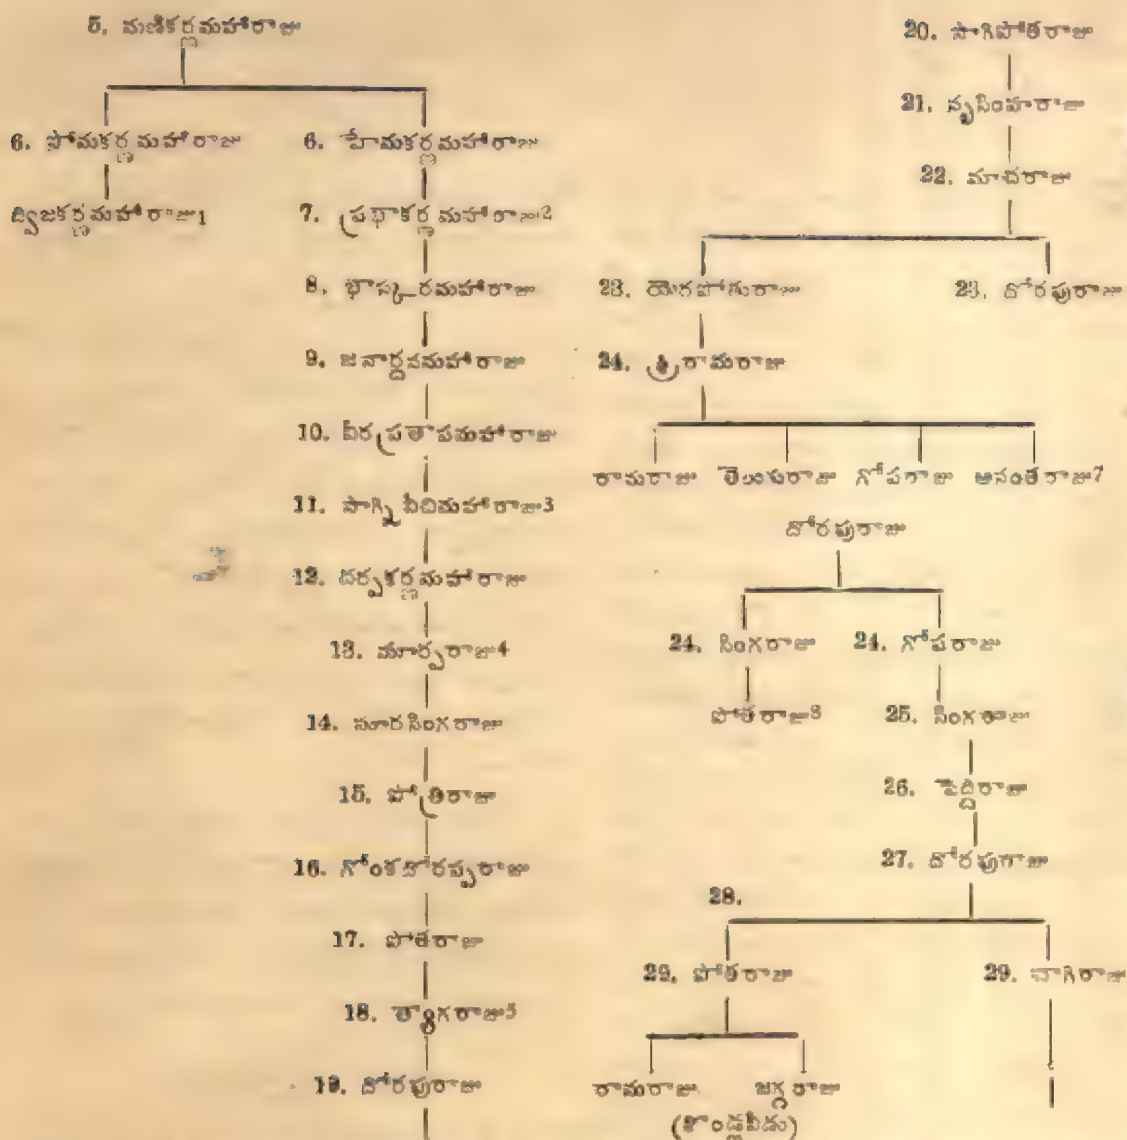 5. మణికర్ణమహారాజు
6. సోమకర్ణమహారాజు 6. హేమకర్ణమహారాజు
ద్విజకర్ణమహారాజు1 7. ప్రభాకర్ణమహారాజు2
8. భాస్కరమహారాజు
9. జనార్దనమహారాజు
10. వీరప్రతాపమహారాజు
11. సాగ్నివీచిమహారాజు3
12. దర్పకర్ణమహారాజు
13. మార్పరాజు4
14. సూరసింగరాజు
15. పోత్రిరాజు
16. గోంకదోరప్పరాజు
17. పోతరాజు
18. త్యాగరాజు5
19. దోరపురాజు
20. సాగిపోతరాజు
21. నృసింహరాజు
22. మాచరాజు
23. యెరపోతురాజు 23. దోరపురాజు
24. శ్రీరామరాజు
రామరాజు తెలుగురాజు గోపరాజు అనంతరాజు7
దోరపురాజు
24. సింగరాజు 24. గోపరాజు
పోతరాజు8 25. సింగరాజు
26. పెద్దిరాజు
27. దోరపురాజు
28.
29. పోతరాజు 29. చాగిరాజు
రామరాజు జగ్గరాజు
(కొండ్లవీడు)